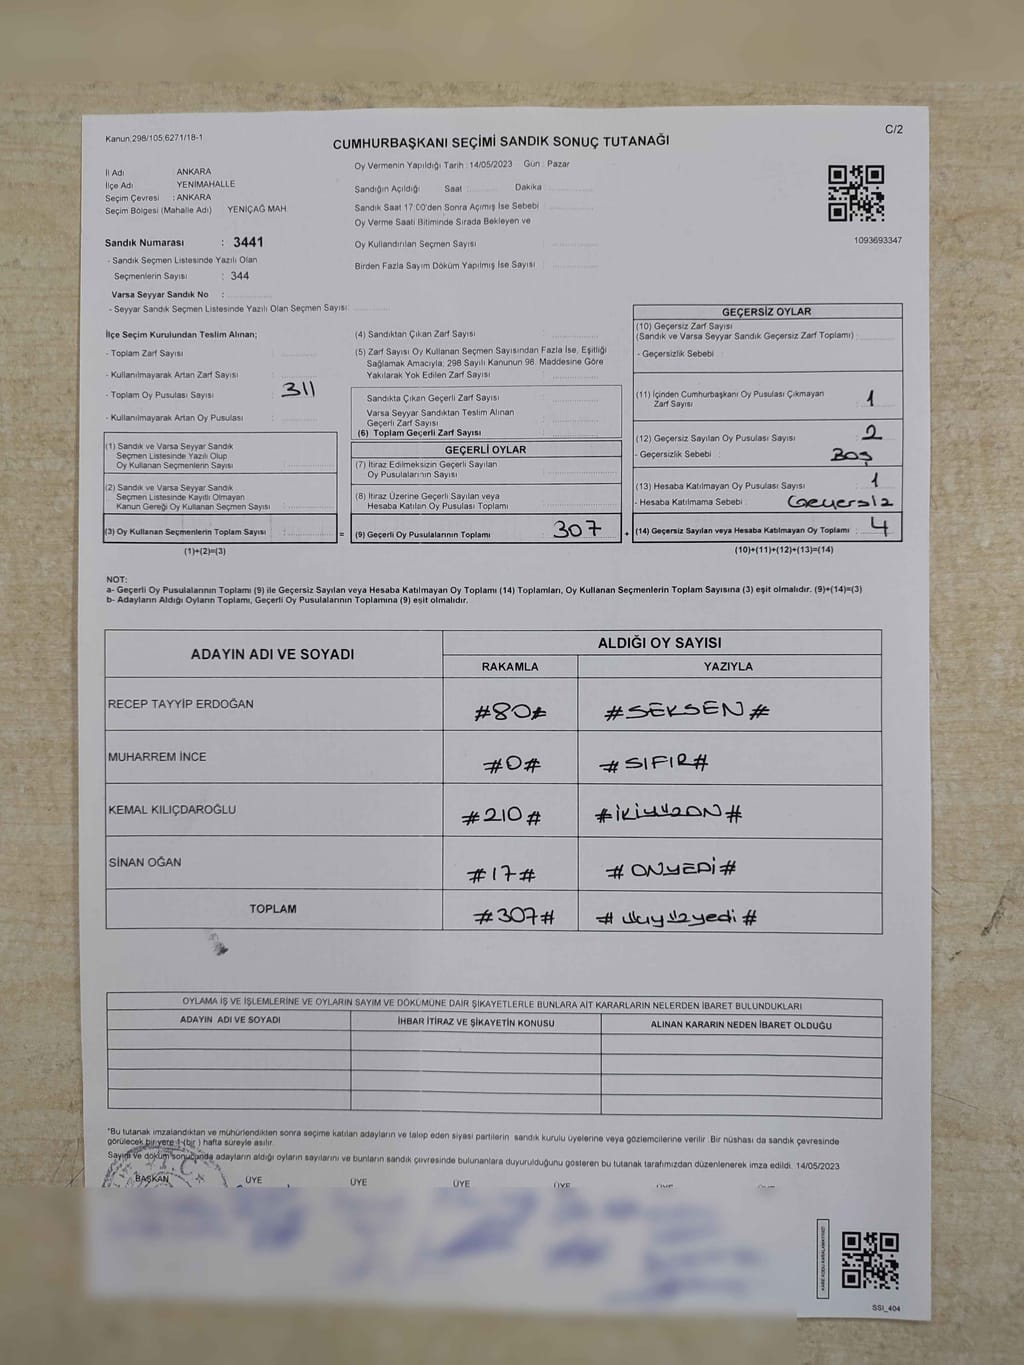 Kanun:298/105;6271/18-1
C/2
CUMHURBAŞKANI SEÇİMİ SANDIK SONUÇ TUTANAĞI
İl Adı : ANKARA
İlçe Adı : YENİMAHALLE
Seçim Çevresi : ANKARA
Seçim Bölgesi (Mahalle Adı) YENİÇAĞ MAH.
Oy Vermenin Yapıldığı Tarih :14/05/2023 Gün : Pazar
Sandığın Açıldığı Saat : Dakika
Sandık Saat 17:00'den Sonra Açımış İse Sebebi :
Oy Verme Saati Bitiminde Sırada Bekleyen ve
Oy Kullandırılan Seçmen Sayısı :
Birden Fazla Sayım Döküm Yapılmış İse Sayısı :
1093693347
Sandık Numarası : 3441
- Sandık Seçmen Listesinde Yazılı Olan
Seçmenlerin Sayısı : 344
Varsa Seyyar Sandık No :
- Seyyar Sandık Seçmen Listesinde Yazılı Olan Seçmen Sayısı:
İlçe Seçim Kurulundan Teslim Alınan;
- Toplam Zarf Sayısı :
- Kullanılmayarak Artan Zarf Sayısı :
- Toplam Oy Pusulası Sayısı : 311
- Kullanılmayarak Artan Oy Pusulası :
(1) Sandık ve Varsa Seyyar Sandık
Seçmen Listesinde Yazılı Olup
Oy Kullanan Seçmenlerin Sayısı :
(2) Sandık ve Varsa Seyyar Sandık
Seçmen Listesinde Kayıtlı Olmayan
Kanun Gereği Oy Kullanan Seçmen Sayısı :
(3) Oy Kullanan Seçmenlerin Toplam Sayısı :
(1)+(2)=(3)
=
(4) Sandıktan Çıkan Zarf Sayısı :
(5) Zarf Sayısı Oy Kullanan Seçmen Sayısından Fazla İse, Eşitliği
Sağlamak Amacıyla; 298 Sayılı Kanunun 98. Maddesine Göre
Yakılarak Yok Edilen Zarf Sayısı :
Sandıkta Çıkan Geçerli Zarf Sayısı :
Varsa Seyyar Sandıktan Teslim Alınan
Geçerli Zarf Sayısı :
(6) Toplam Geçerli Zarf Sayısı :
GEÇERLİ OYLAR
(7) İtiraz Edilmeksizin Geçerli Sayılan
Oy Pusulalarının Sayısı :
(8) İtiraz Üzerine Geçerli Sayılan veya
Hesaba Katılan Oy Pusulaları Toplamı :
(9) Geçerli Oy Pusulalarının Toplamı : 307
+
GEÇERSİZ OYLAR
(10) Geçersiz Zarf Sayısı
(Sandık ve Varsa Seyyar Sandık Geçersiz Zarf Toplamı) :
- Geçersizlik Sebebi :
(11) İçinden Cumhurbaşkanı Oy Pusulası Çıkmayan
Zarf Sayısı : 1
(12) Geçersiz Sayılan Oy Pusulası Sayısı : 2
- Geçersizlik Sebebi : BOŞ
(13) Hesaba Katılmayan Oy Pusulası Sayısı : 1
- Hesaba Katılmama Sebebi : Geçersiz
(14) Geçersiz Sayılan veya Hesaba Katılmayan Oy Toplamı : 4
(10)+(11)+(12)+(13)=(14)
NOT:
a- Geçerli Oy Pusulalarının Toplamı (9) ile Geçersiz Sayılan veya Hesaba Katılmayan Oy Toplamı (14) Toplamları, Oy Kullanan Seçmenlerin Toplam Sayısına (3) eşit olmalıdır. (9)+(14)=(3)
b- Adayların Aldığı Oyların Toplamı, Geçerli Oy Pusulalarının Toplamına (9) eşit olmalıdır.
ADAYIN ADI VE SOYADI
ALDIĞI OY SAYISI
RAKAMLA YAZIYLA
RECEP TAYYİP ERDOĞAN #80# #SEKSEN#
MUHARREM İNCE #0# #SIFIR#
KEMAL KILIÇDAROĞLU #210# #İKİYÜZON#
SİNAN OĞAN #17# #ONYEDİ#
TOPLAM #307# #üçyüzyedi#
OYLAMA İŞ VE İŞLEMLERİNE VE OYLARIN SAYIM VE DÖKÜMÜNE DAİR ŞİKAYETLERLE BUNLARA AİT KARARLARIN NELERDEN İBARET BULUNDUKLARI
ADAYIN ADI VE SOYADI İHBAR İTİRAZ VE ŞİKAYETİN KONUSU ALINAN KARARIN NEDEN İBARET OLDUĞU
"Bu tutanak imzalandıktan ve mühürlendikten sonra seçime katılan adayların ve talep eden siyasi partilerin sandık kurulu üyelerine veya gözlemcilerine verilir .Bir nüshası da sandık çevresinde
görülecek bir yere 1 (bir ) hafta süreyle asılır.
Sayım ve döküm sonucunda adayların aldığı oyların sayılarını ve bunların sandık çevresinde bulunanlara duyurulduğunu gösteren bu tutanak tarafımızdan düzenlenerek imza edildi. 14/05/2023
BAŞKAN ÜYE ÜYE ÜYE ÜYE
T.C.
SSİ_404